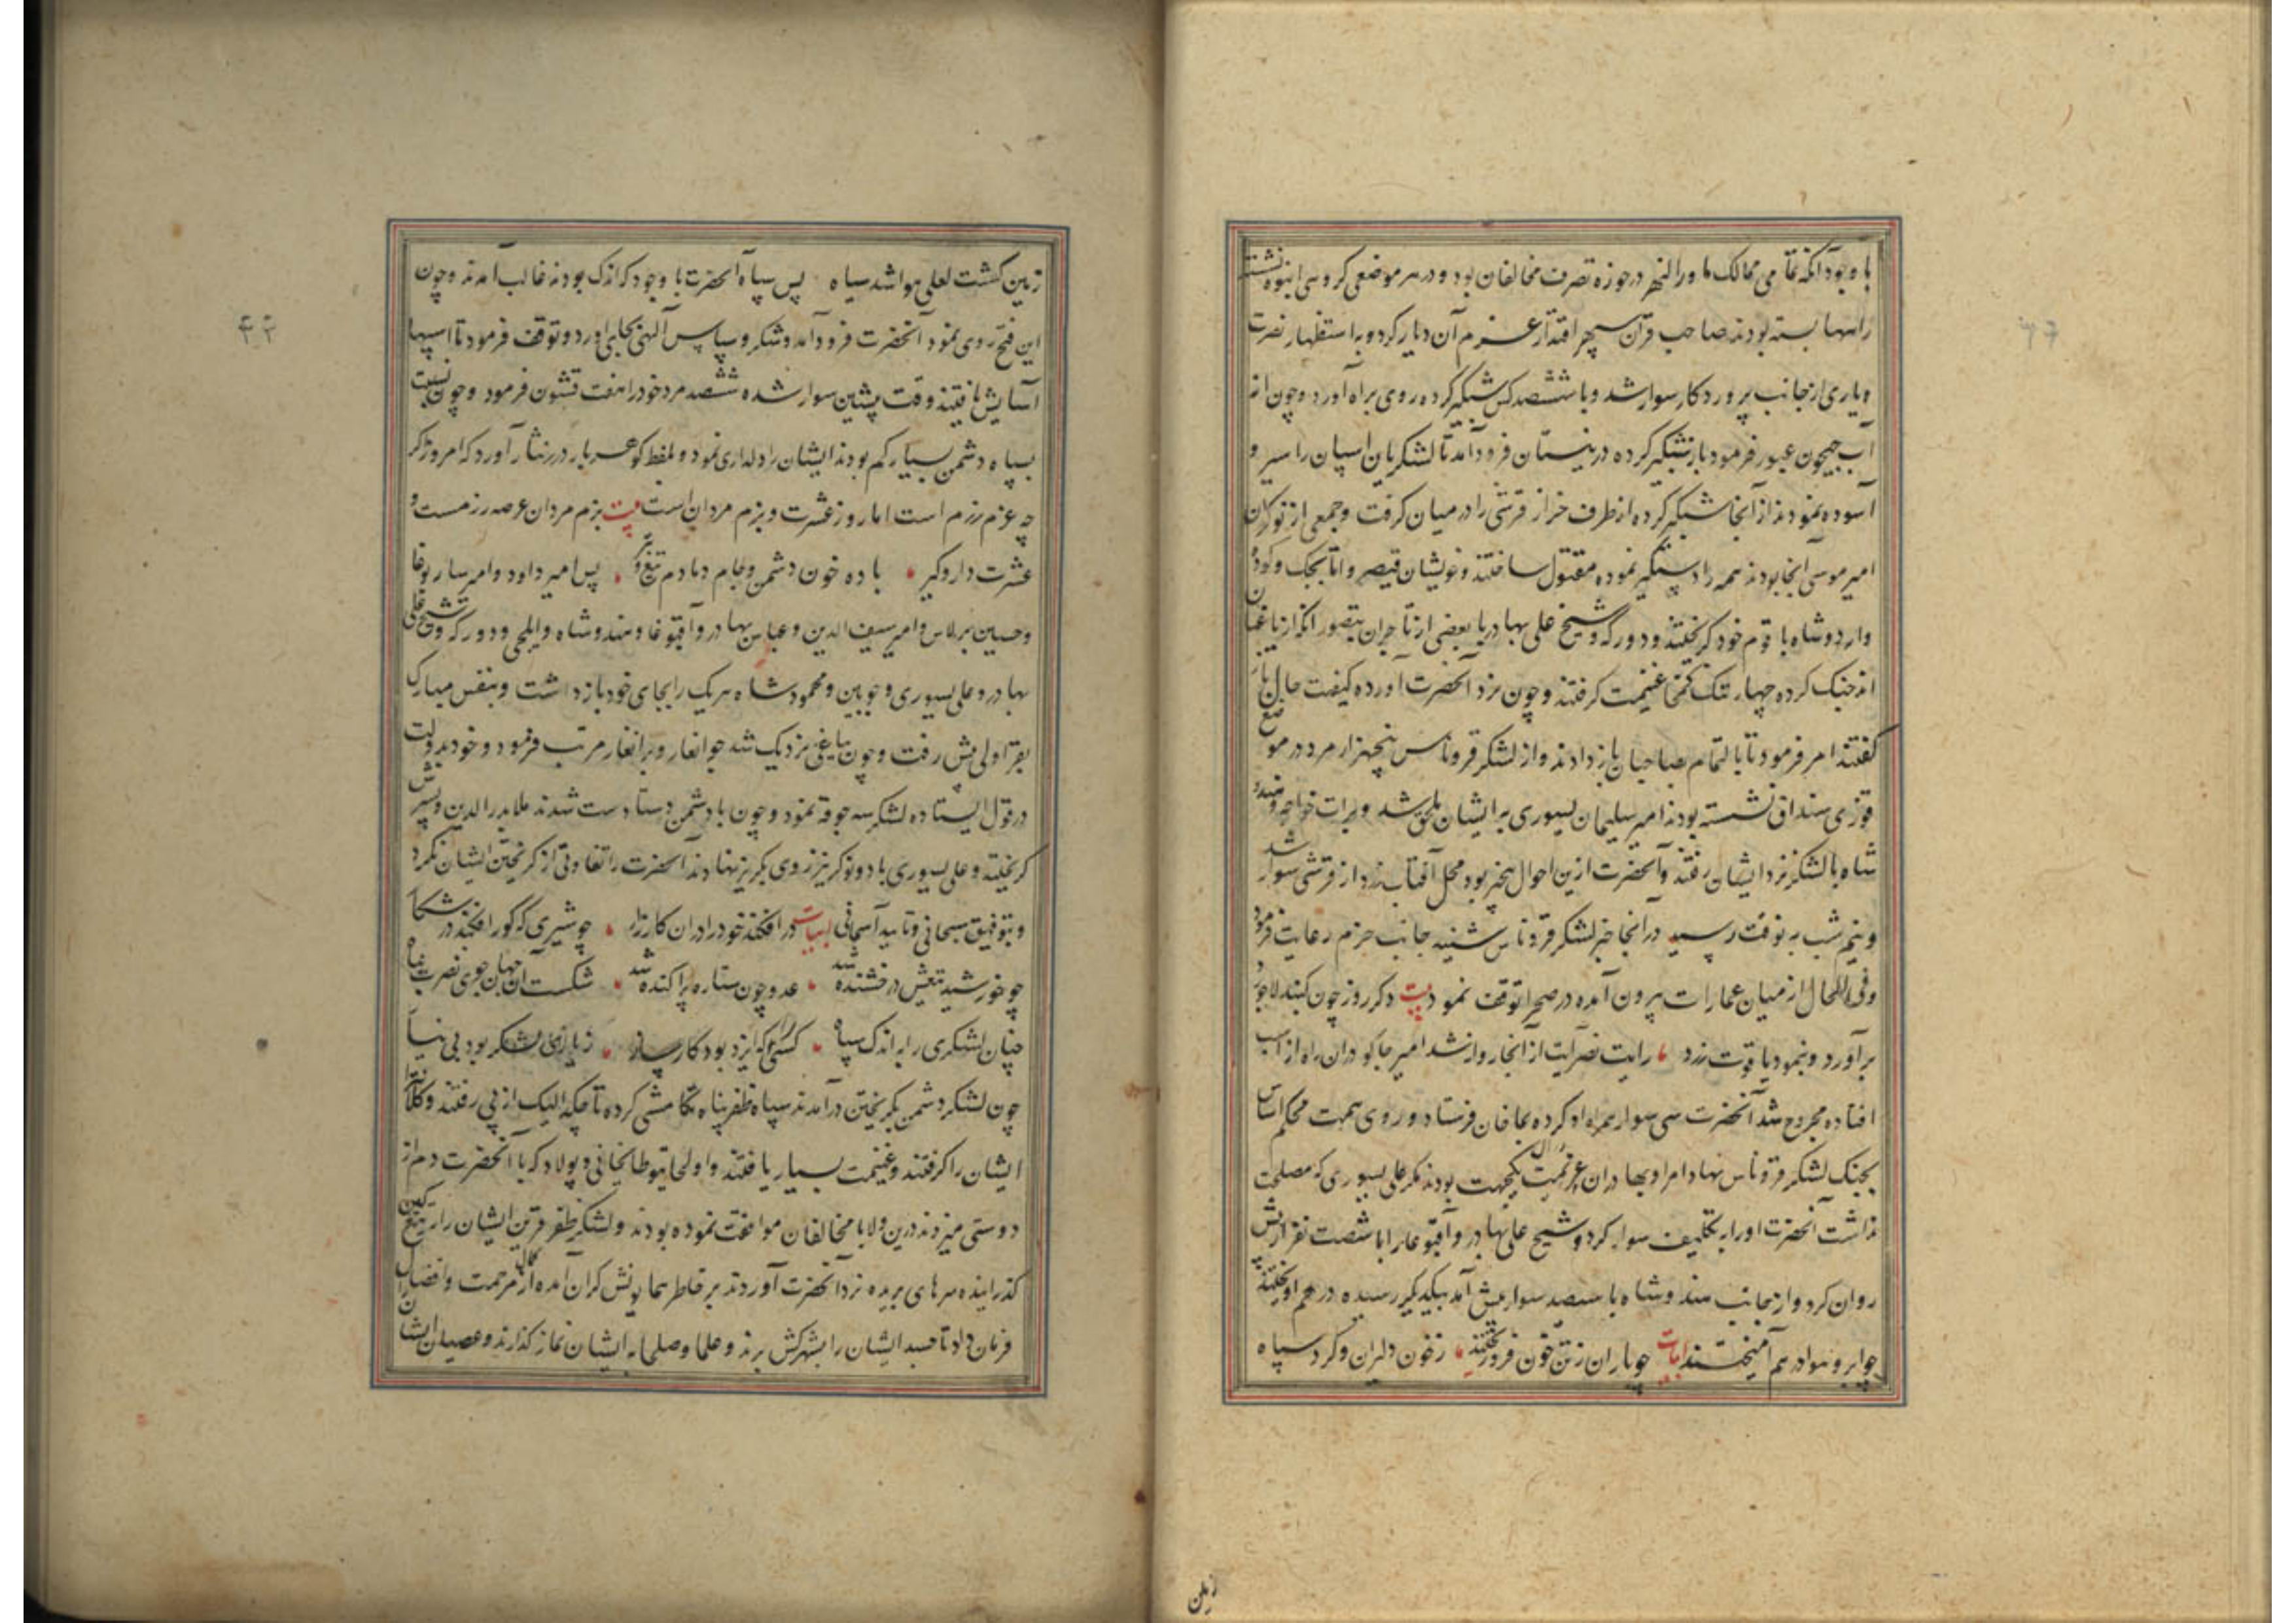 با وجود آنکه تمامی ممالک ماوراالنهر در حوزه تصرف مخالفان بود و در هر موضعی کروهی انبوه نشسته
راهها بسته بودند صاحب قران سپهر اقتدار عزم آن دیار کرد و به استظهار نصرت
و یاری از جانب پروردکار سوار شد و با ششصد کس شبکیر کرده روی براه آورد و چون از
آب جیحون عبور فرمود باز شبکیر کرده در نیستان فرود آمد تا لشکریان اسپان را سیر و
آسوده نمودند از آنجا شبکیر کرده از طرف خزار قرشی را در میان کرفت و جمعی از نوکران
امیر موسی آنجا بودند همه را دستکیر نموده مقتول ساختند و خویشان قیصر و اتابجک و کودن
و اردوشاه با قوم خود کریختند و دورکه و شیخ علی بهادر با بعضی از تاجران بتصور آنکه از یاغیان
اند جنک کرده چهار تنک قمخا غنیمت کرفتند و چون نزد آنحضرت آورده کیفیت حال باز
کفتند امر فرمود تا بالتمام بصاحبان باز دادند و از لشکر قروناس پنجهزار مرد در موضع
قوزی منداق نشسته بودند امیر سلیمان یسوری بر ایشان ملحق شد و برات خواجه و هندو
شاه با لشکر نزد ایشان رفتند و آنحضرت ازین احوال بیخبر بود محل آفتاب زرد از قرشی سوار شد
و نیم شب به نوقت رسید در آنجا خبر لشکر قروناس شنیده جانب حزم رعایت فرمود
و فی الحال از میان عمارات بیرون آمده در صحرا توقف نمود بیت دکر روز چون کنبد لاجورد
برآورد و بنمود یاقوت زرد رایت نصرایت از آنجا روان شد امیر جاکو در ان راه از اسب
افتاده مجروح شد آنحضرت سی سوار همراه او کرده بماخان فرستاد و روی همت محکم اساس
بجنک لشکر قروناس نهاد امرا و بهادران در ان عزیمت یکجهت بودند مکر علی یسوری که مصلحت
نداشت آنحضرت او را بتکلیف سوار کرد و شیخ علی بهادر و آقبوغا را با شصت نفر از پیش
روان کرد و از بجانب هندوشاه با سیصد سوار پیش آمد بیکدیکر رسیده در هم آویختند
چو ابر و هوا در هم آمیختند ابیات چو باران ز تن خون فرو ریختند ز خون دلیران و کرد سپاه
زمین
زمین کشت لعلی هوا شد سیاه پس سپاه آنحضرت با وجود که اندک بودند غالب آمدند و چون
این فتح روی نمود آنحضرت فرود آمد و شکر و سپاس آلهی بجای آورد و توقف فرمود تا اسپها
آسایش یافتند وقت پیشین سوار شده ششصد مرد خود را هفت قشون فرمود و چون نسبت
بسپاه دشمن بسیار کم بودند ایشان را دلداری نمود و بلفظ کوهربار درر نثار آورد که امروز اکر
چه عزم رزم است اما روز عشرت و بزم مردان است بیت بزم مردان عرصه رزمست و
عشرت دار و کیر باده خون دشمن و جام دمادم تیغ و تیر پس امیر داود و امیر سار بوغا
و حسین برلاس و امیر سیف الدین و عباس بهادر و آقبوغا و هندوشاه و ایلچی و دورکه و شیخ علی
بهادر و علی یسوری و جوبین و محمود شاه هر یک را بجای خود باز داشت و بنفس مبارک
بقراولی پیش رفت و چون یاغی نزدیک شد جوانغار و برانغار مرتب فرمود و خود بدولت
در قول ایستاده لشکر سه جوقه نمود و چون با دشمن دستادست شدند ملا بدرالدین و پسرش
کریختند و علی یسوری با دو نوکر نیز روی بکریز نهادند آنحضرت را تفاوتی از کریختن ایشان نکرد
و بتوفیق سبحانی و تایید آسمانی ابیات در افکند خود را در ان کارزار چو شیری که کور افکند در شکار
چو خورشید تیغش درخشنده شد عدو چون ستاره پراکنده شد شکست آن جهان جوی نصرت پناه
چنان لشکری را به اندک سپاه کسی را که ایزد بود کارساز ز یاری لشکر بود بی نیاز
چون لشکر دشمن بکریختن درآمدند سپاه ظفرپناه تکامشی کرده تا جکدالیک از پی رفتند و کلانتران
ایشان را کرفتند و غنیمت بسیار یافتند و اولجایتو طایخانی و پولاد که با آنحضرت دم از
دوستی میزدند درین ولا با مخالفان موافقت نموده بودند و لشکر ظفر قرین ایشان را بر تیغ کین
کذرانیده سرهای بریده نزد آنحضرت آوردند بر خاطر همایونش کران آمده از کمال مرحمت و افضال
فرمان داد تا جسد ایشان را بشهرکش برند و علما و صلحا به ایشان نماز کذارند و عصیان ایشان را